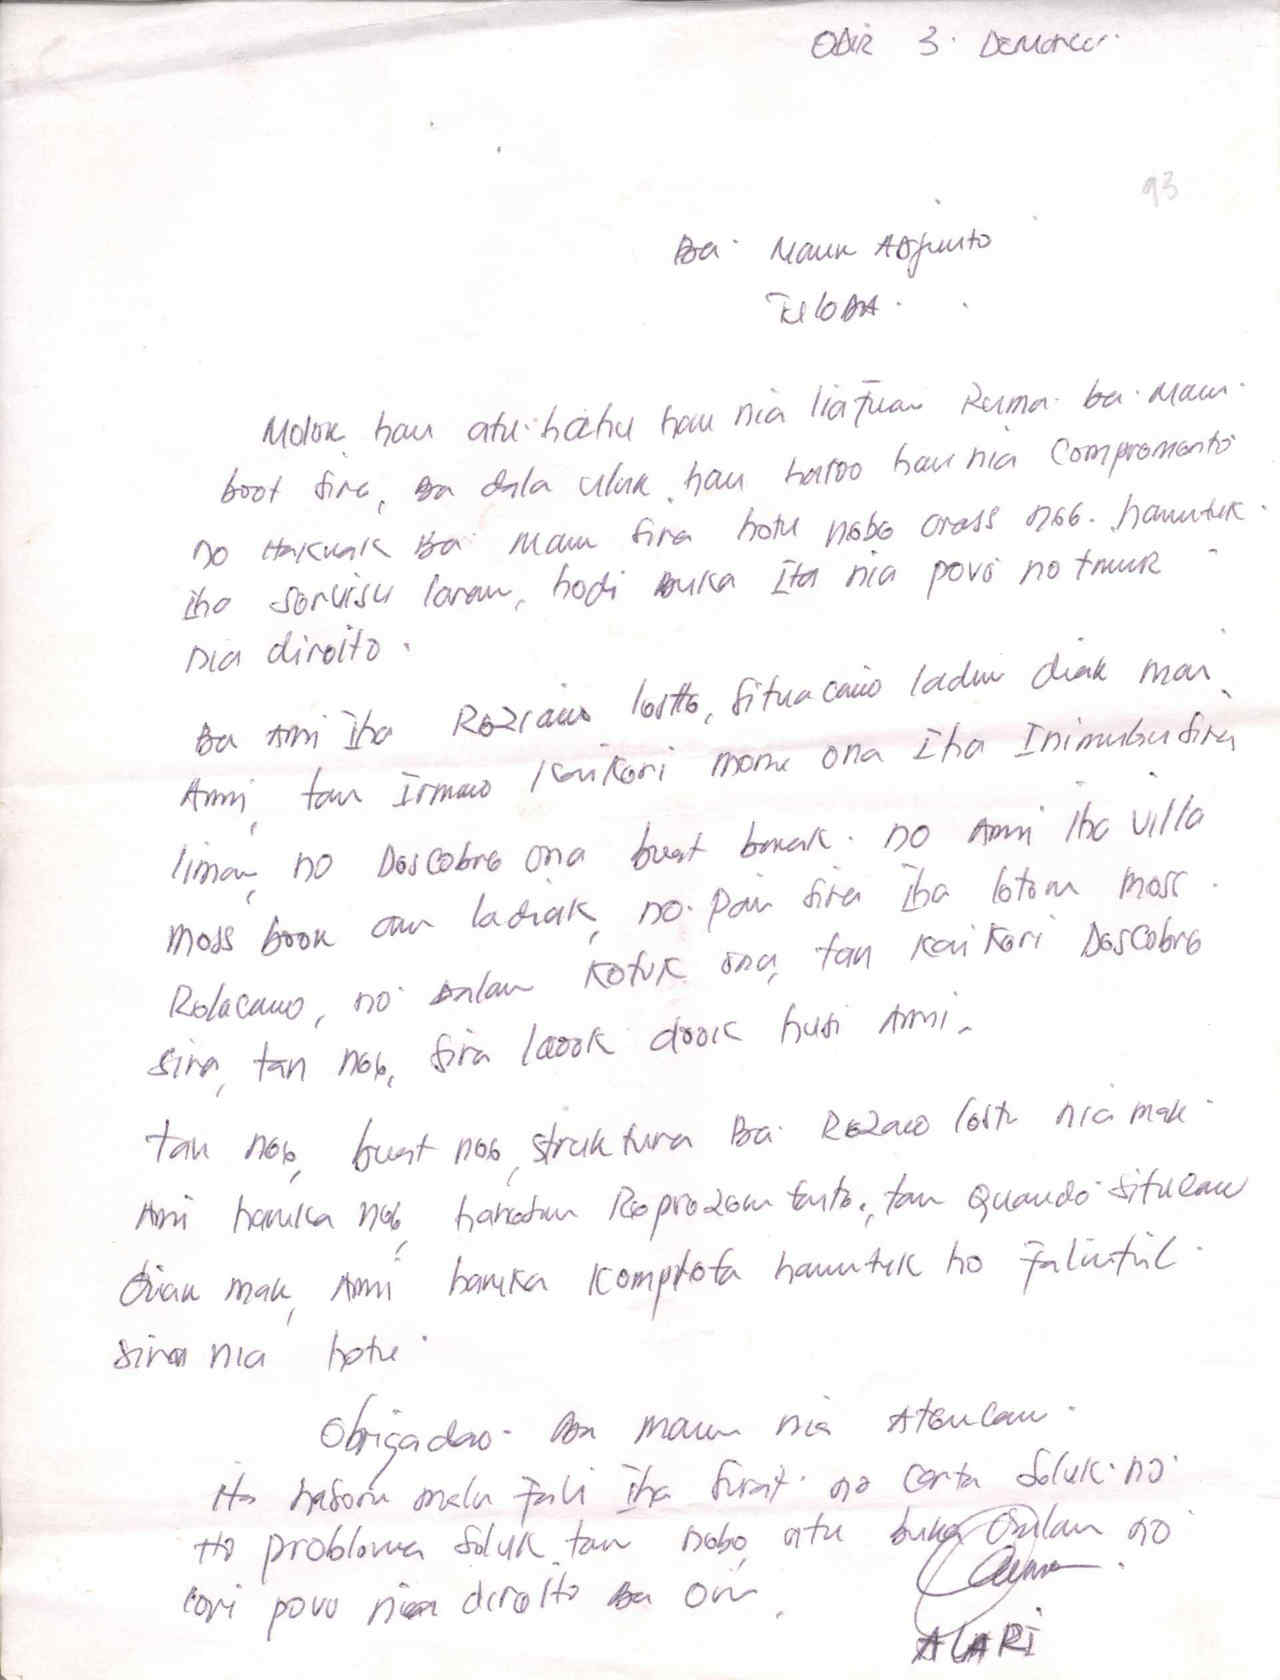 ODIR 3. 
93
Ba. Maun Adjunto
Molok hau atu. hahu hau nia liafuan Ruma. ba. Maun.
boot sira, Ba dala uluk hau hatoo hau nia Compromento
no Hakuak Ba Maun sira hotu nebe orass nee. hamutuk.
iha servisu laran, hodi Buka Ita nia povo no timur
nia direito.
Ba Ami Iha Reziaun lostto, situacaun ladun diak mai
Ami, tan Irmao Kaikeri mone ona Iha Inimubu sira
liman, no Descobre ona buat barak. no Ami iha villa
moss book an ladiak, no. pan sira Iha loton moss.
Relacauo, no dalan Kotuk ona, tan Kai Keri Descobre
sira, tan nee, sira laook dook husi Ami.
tan nee, buat nee, struktura Ba Rezaeo lostu nia mak
Ami haruka nee, hanesan Reprezentante., tan Quando situcau
diak mak, Ami haruka Kompleta hamutuk ho Falintil.
siran nia hotu.
Obrigadao. Ba maun nia Atencau.
Ita hasoru malu Fali Iha surat. no Carta seluk. no
Ho problema seluk tan nebe atu buka Dalan no
Lori povo nia direito Ba Oin.
ALARI